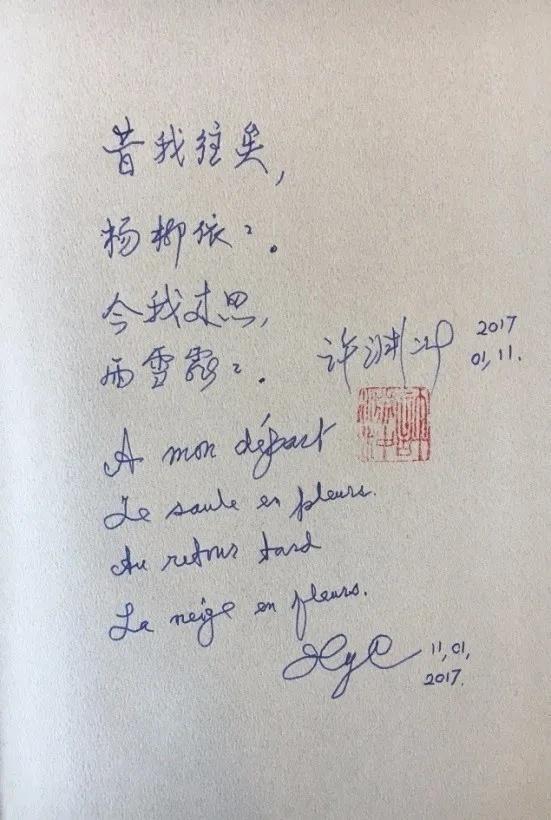 昔我往矣,
杨柳依々。
今我来思,
雨雪霏々。
许渊冲 2017
01,11.
A mon départ
Le saule en pleurs.
Au retour tard
La neige en fleurs.
XyC 11,01,
2017.